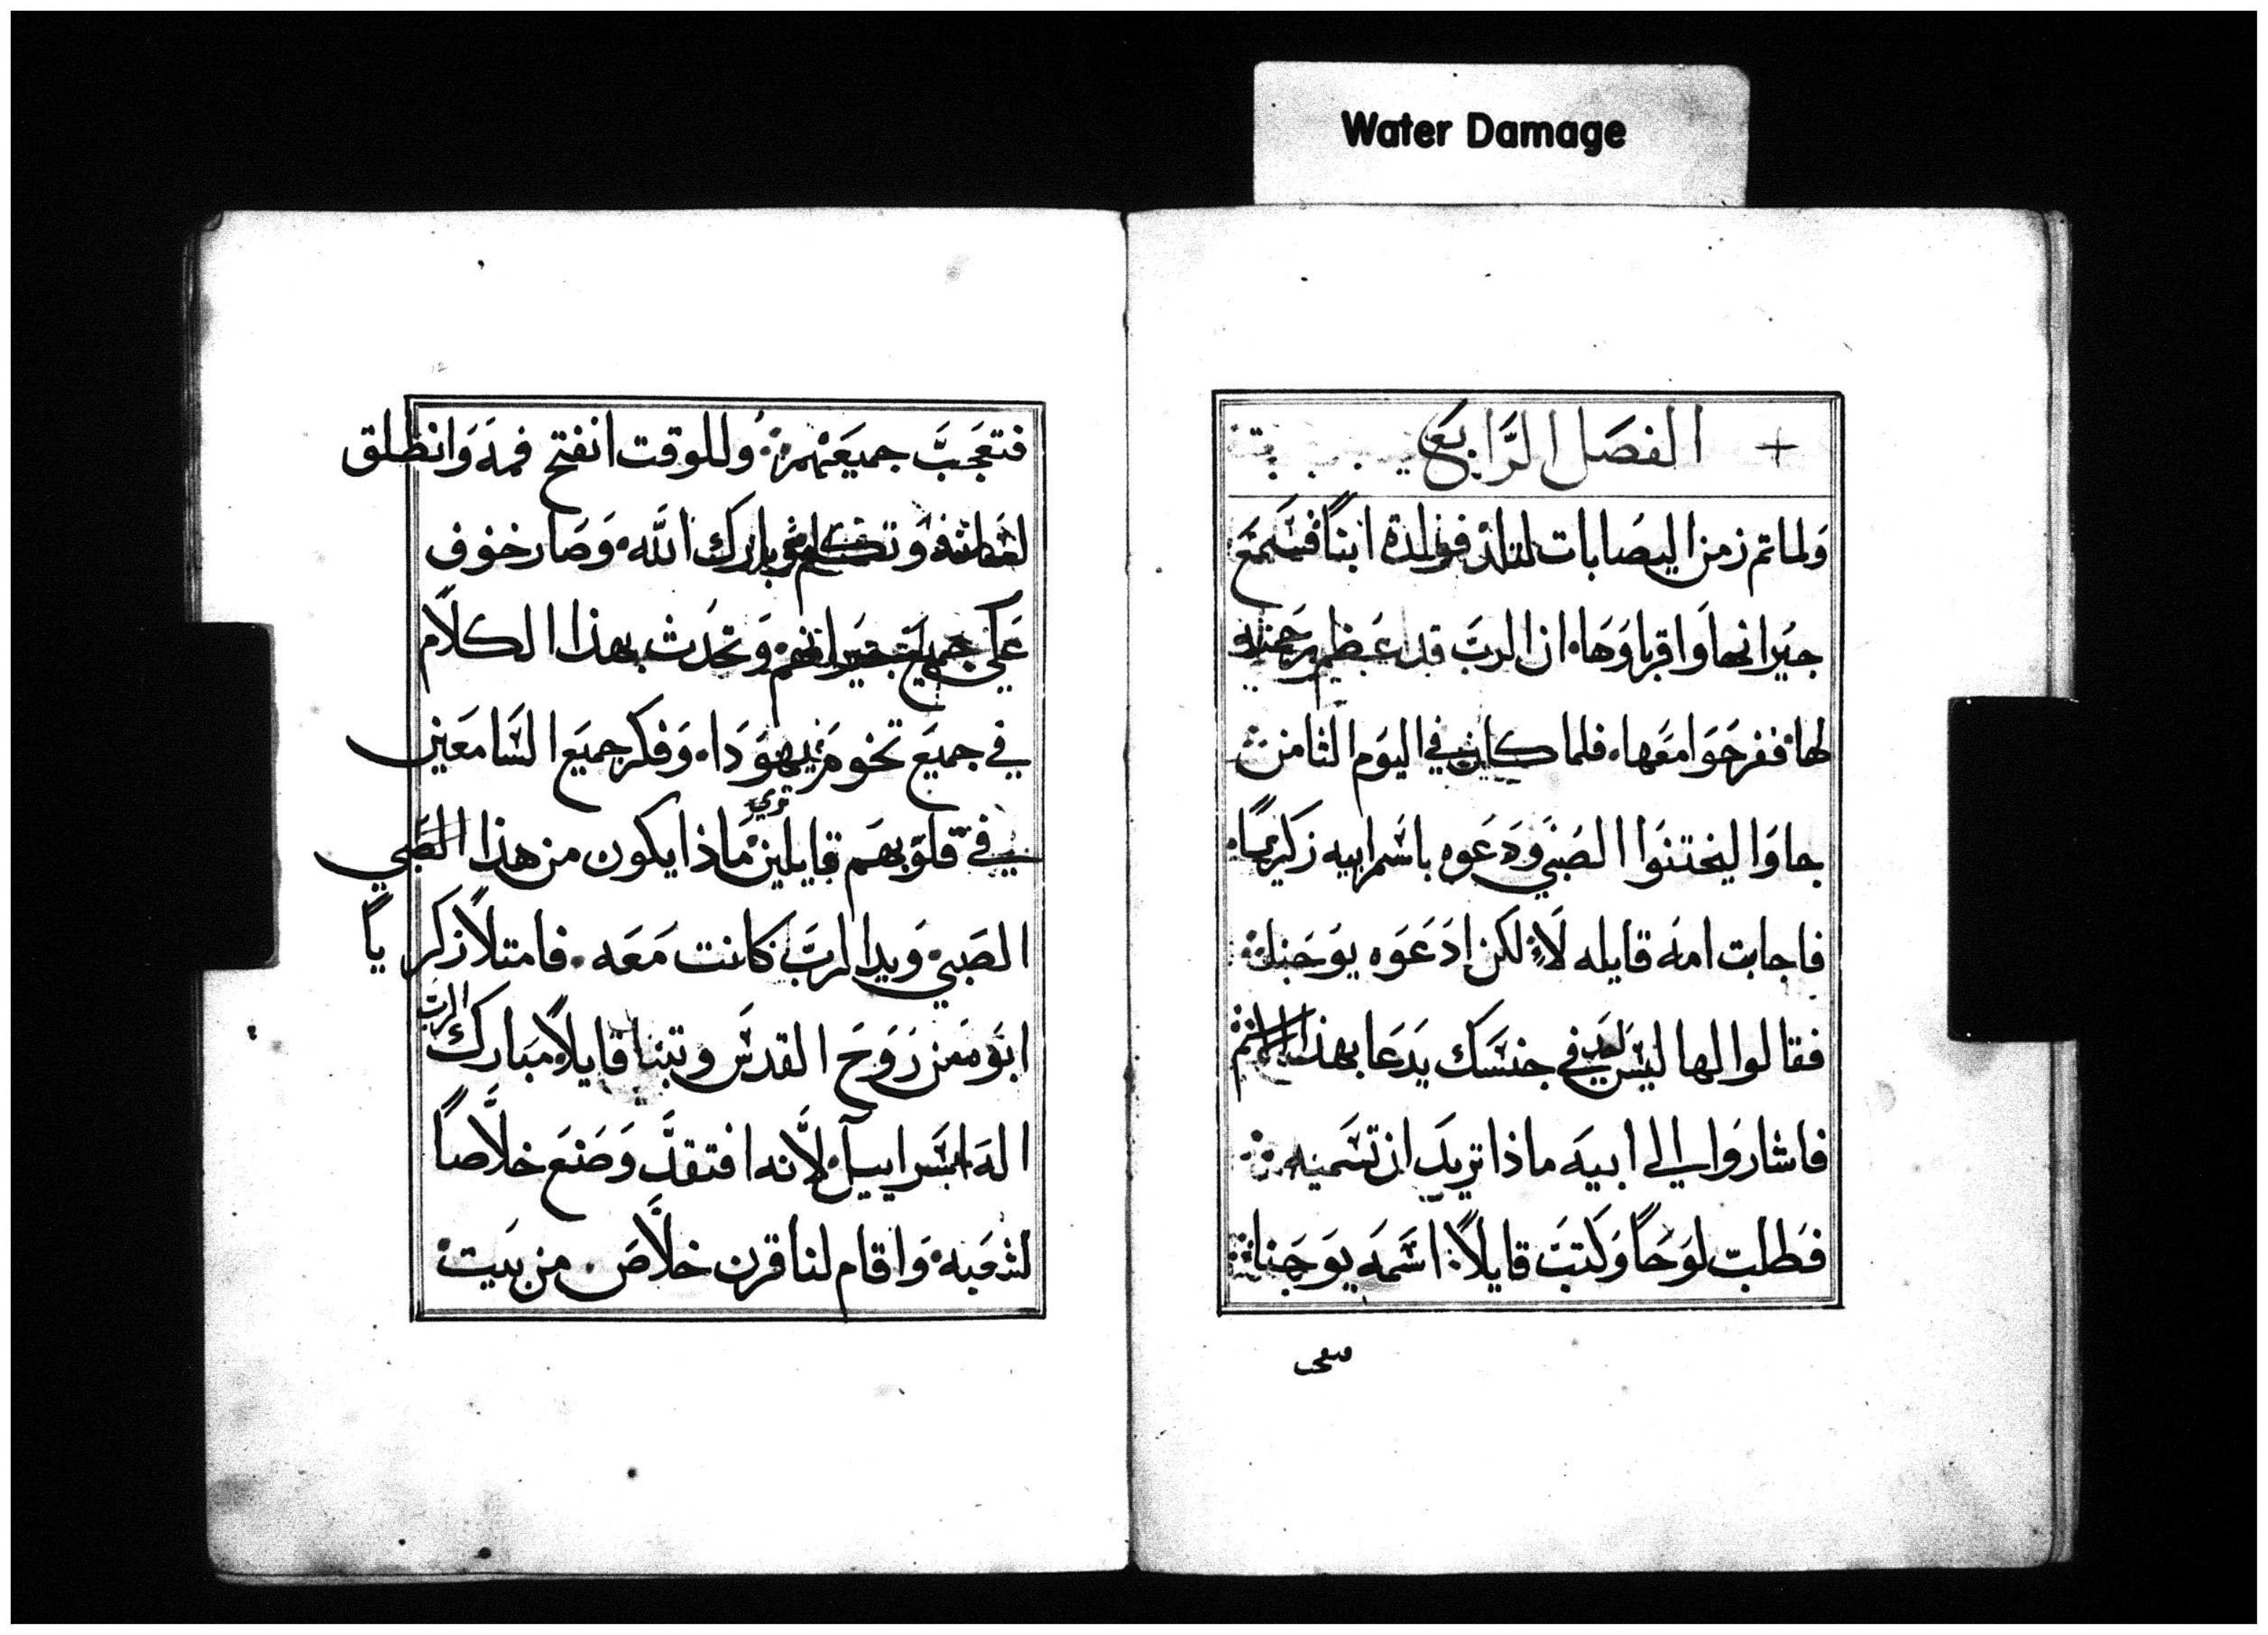 Water Damage
+ الفصَل الرَّابع
وَلماتم زمن اليصَابات لتلد فولدة ابنًا فسَمعَ
جيَرانها وَاقرباوَهَا ان الربَّ قد اعَظم رَحمته
لها ففرحَوَا معَها فلما كان في اليوَم الثامن
جاوَا ليختنَوا الصَبي وَدَعَوه باسَم ابيه زكَريا
فاجابت امه قايله لَا لكن ادَعَوَه يوَحَنا
فقالوا لها ليسَ احد في جنسَك يَدعَا بهذا الاسم
فاشاروَا الي ابيه ماذا تريدَ ان تسَميه
فطَلبَ لوَحَاً وَكتبَ قايلاً اسَمه يوَحَنا
فتعجب
فتعَجبَّ جميعَهم وَللوقت انفتح فمه وَانطلق
لسَانه وَتكلم وبارك اللَّه وَصَار خوف
عَلي جميع جيَرانهم وَتحَدث بهذا الكلاَم
في جميعَ تخوم يهوَدَا وَفكر جميعَ السَّامعَين
في قلوَبهَم قايلين تري مَاذا يكون من هذا الصَّبي
الصَبي وَيد الربَّ كانت مَعَه فامتلاً زكريًا
ابوَه من رَوَحَ القدسَ وتبنا قايلاً مَبارك الرب
الهَ اسَراييل لاَنه افتقدَّ وَصَنعَ خلاَّصاً
لشعَبه وَاقام لنا قرن خلاَّصَ من بَيت